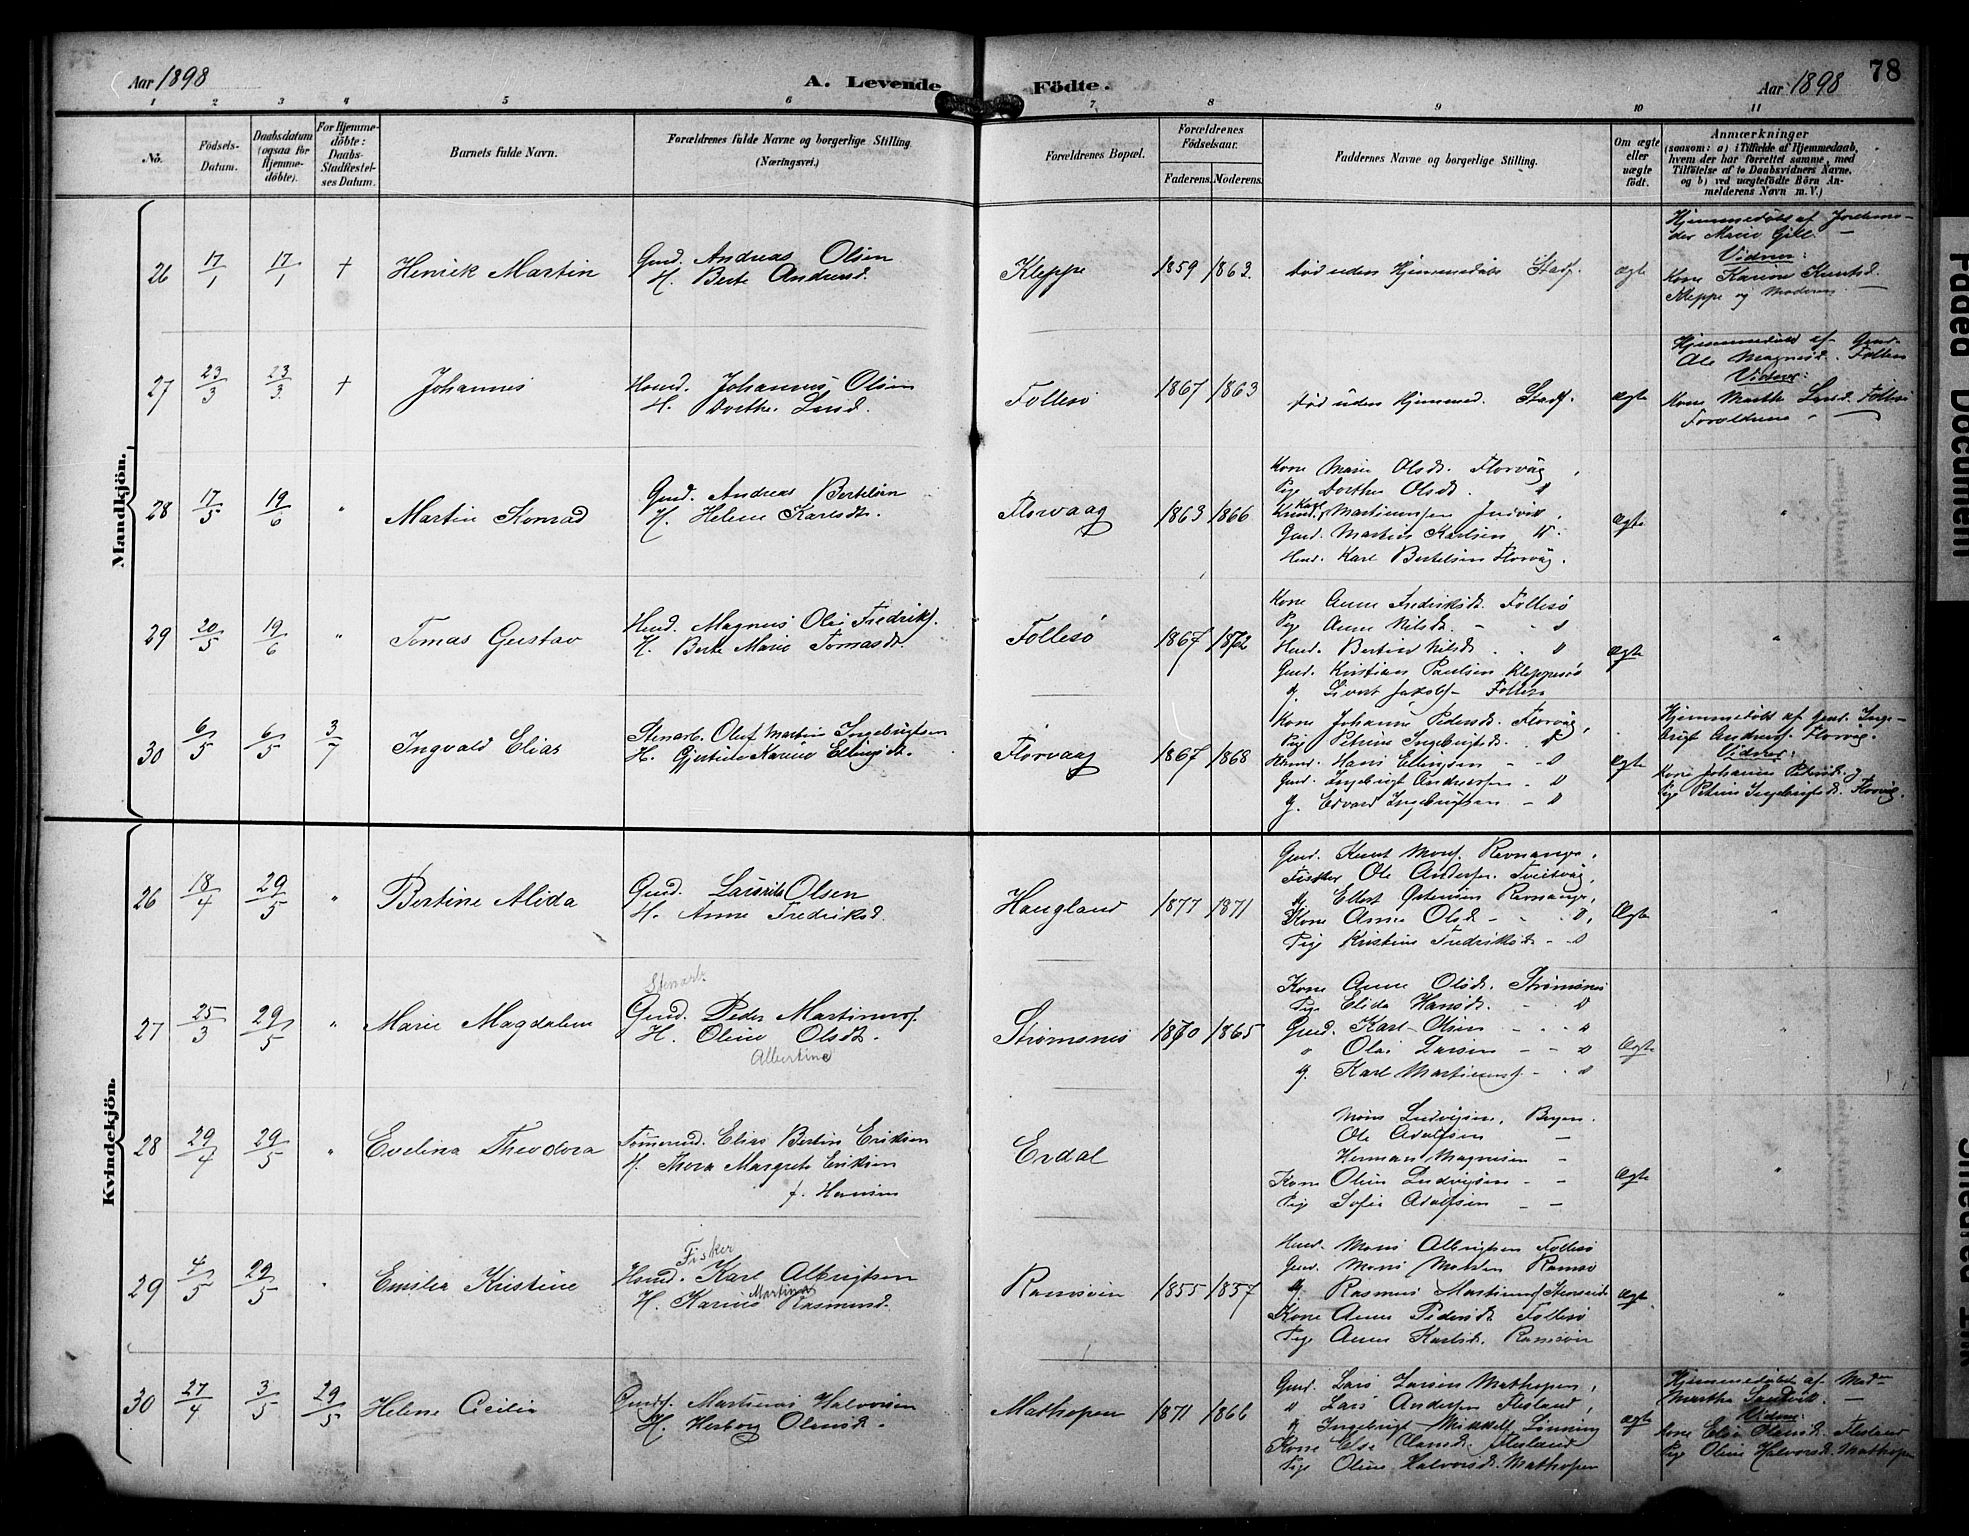 Aar 1898
A. Levende Födte.
Aar 1898
78
1 2 3 4 5 6 7 8 9 10 11
No.
Födsels-Datum.
Daabsdatum (ogsaa for Hjemme-döbte).
For Hjemme-döbte: Daabs-Stadfæstel-ses Datum.
Barnets fulde Navn.
Forældrenes fulde Navne og borgerlige Stilling. (Næringsvei.)
Forældrenes Bopæl.
Forældrenes Födselsaar.
Faderens. Moderens.
Faddernes Navne og borgerlige Stilling.
Om ægte eller uægte födt.
Anmærkninger
(saasom: a) i Tilfælde af Hjemmedaab,
hvem der har forrettet samme, med
Tilföielse af to Daabsvidners Navne,
og b) ved uægtefödte Börn An-
melderens Navn m. V.)
Mandkjön.
26 17/1 17/1 † Henrik Martin
Gmd. Andreas Olsen
H. Berte Andersd.
Kleppe 1859 1863.
død uden Hjemmedåbs Stadf.
ægte
Hjemmedøbt af Jordemo-
der Marie Gill. —
Vidner:
Kone Karine Knutsd.
Kleppe og Moderen. —
27 23/3 23/3 † Johannes
Husmd. Johannes Olsen
H. Dorthe Larsd.
Follesø 1867 1863
død uden Hjemmed. Stadf.
ægte
Hjemmedøbt af Gmd.
Ole Magnesd. Follesø
Vidner:
Kone Marthe Larsd. Follesø
Forældrene
28 17/5 19/6 " Martin Konrad
Gmd. Andreas Bertelsen
H. Helene Karlsdt.
Florvaag 1863 1866
Kone Marie Olsdt. Florvåg,
Pige Dorthea Olsdt. "
Karl Martinussen Indvik.
Gmd. Martin Karlsen "
Husmd. Karl Bertelsen Florvåg.
ægte "
29 20/5 19/6 " Tomas Gustav
Husmd. Magnus Olai Fredriks.
H. Berte Marie Tomasdt.
Follesø 1867 1872
Kone Anne Fredriksdt. Follesø
Pige Anne Nilsdt. - - "
Husmd. Bertin Nilsdt. - "
Gmd. Kristian Paulsen Kleppesø
U. Sivert Jakobs. Follesø
ægte "
30 6/5 6/5 3/7 Ingvald Elias
Stenarb. Oluf Martin Ingebrigtsen
H. Gjertine Karine Ellingsdt.
Florvaag 1867 1868
Kone Johanne Pedersdt. Florvåg,
Pige Petrine Ingebrigtsdt. - "
Husmd. Hans Ellingsen - - "
Gmd. Ingebrigt Andreassen - "
U. Edvard Ingebrigtsen - "
ægte
Hjemmedøbt af Gmd. Inge-
brigt Andreass. Florvåg.
Vidner:
Kone Johanne Pedersdt. og
Pige Petrine Ingebrigtsdt. Florvåg.
Kvindekjön.
26 18/4 29/5 " Bertine Alida
Gmd. Lauritz Olsen
H. Anne Fredriksd.
Haugland 1877 1871
Gmd. Knut Mons. Ravnanger,
Fisker Ole Anders. Tveitvåg,
U. Ellert Ravnanger,
Kone Anne Olsdt. - - ",
Pige Kristine Fredriksdt. - "
Ægte "
27 25/3 29/5 " Marie Magdalena
Stenarb.
Gmd. Peder Martinuss.
H. Oline Olsdt.
Albertine
Strømsnes 1870 1865
Kone Anne Olsdt. Strømsnes
Pige Elida Hansdt. - "
Gmd. Karl Olsen - - "
" Olai Larsen - - "
U. Karl Martinuss. - "
Ægte "
28 29/4 29/5 " Evelina Theodora
Tømmermd. Elias Bertin Eriksen
H. Thora Margrete Eriksen
f. Hansen
Erdal
Mons Ludvigsen, Bergen.
Ole Adolfsen —
Herman Magnesen -
Kone Oline Ludvigsen - -
Pige Sofie Adolfsen - -
Ægte "
29 4/5 29/5 " Emilia Kristine
Fisker
Husmd. Karl Albrigtsen
Martine
H. Karine Rasmusd.
Ramsøen 1855 1857
Husmd. Mons Albrigtsen Follesø
Gmd. Mons Monsen Ramsø
U. Rasmus Martinuss.
Kone Anne Pedersdt. Follesø
Pige Anna Karlsdt. Ramsøen
ægte "
30 27/4 3/5 29/5 Helene Cecilie
Gmd. Martinus Halvorsen
H. Herborg Olsensdt.
Mathopen 1871 1866
Gmd. Lars Larsen Mathopen,
" Lars Andersen Flesland,
U. Ingebrigt Mikkels. Lønning
Kone Else Olsensdt. Flesland
Pige Oline Halvorsdt. Mathopen
ægte
Hjemmedøbt af Mad.
Martha Sandvik. —
Vidner:
Kone Else Olsensdt. Flesland
Pige Oline Halvorsdt. Mathopen
Faded Document
Smeared Ink